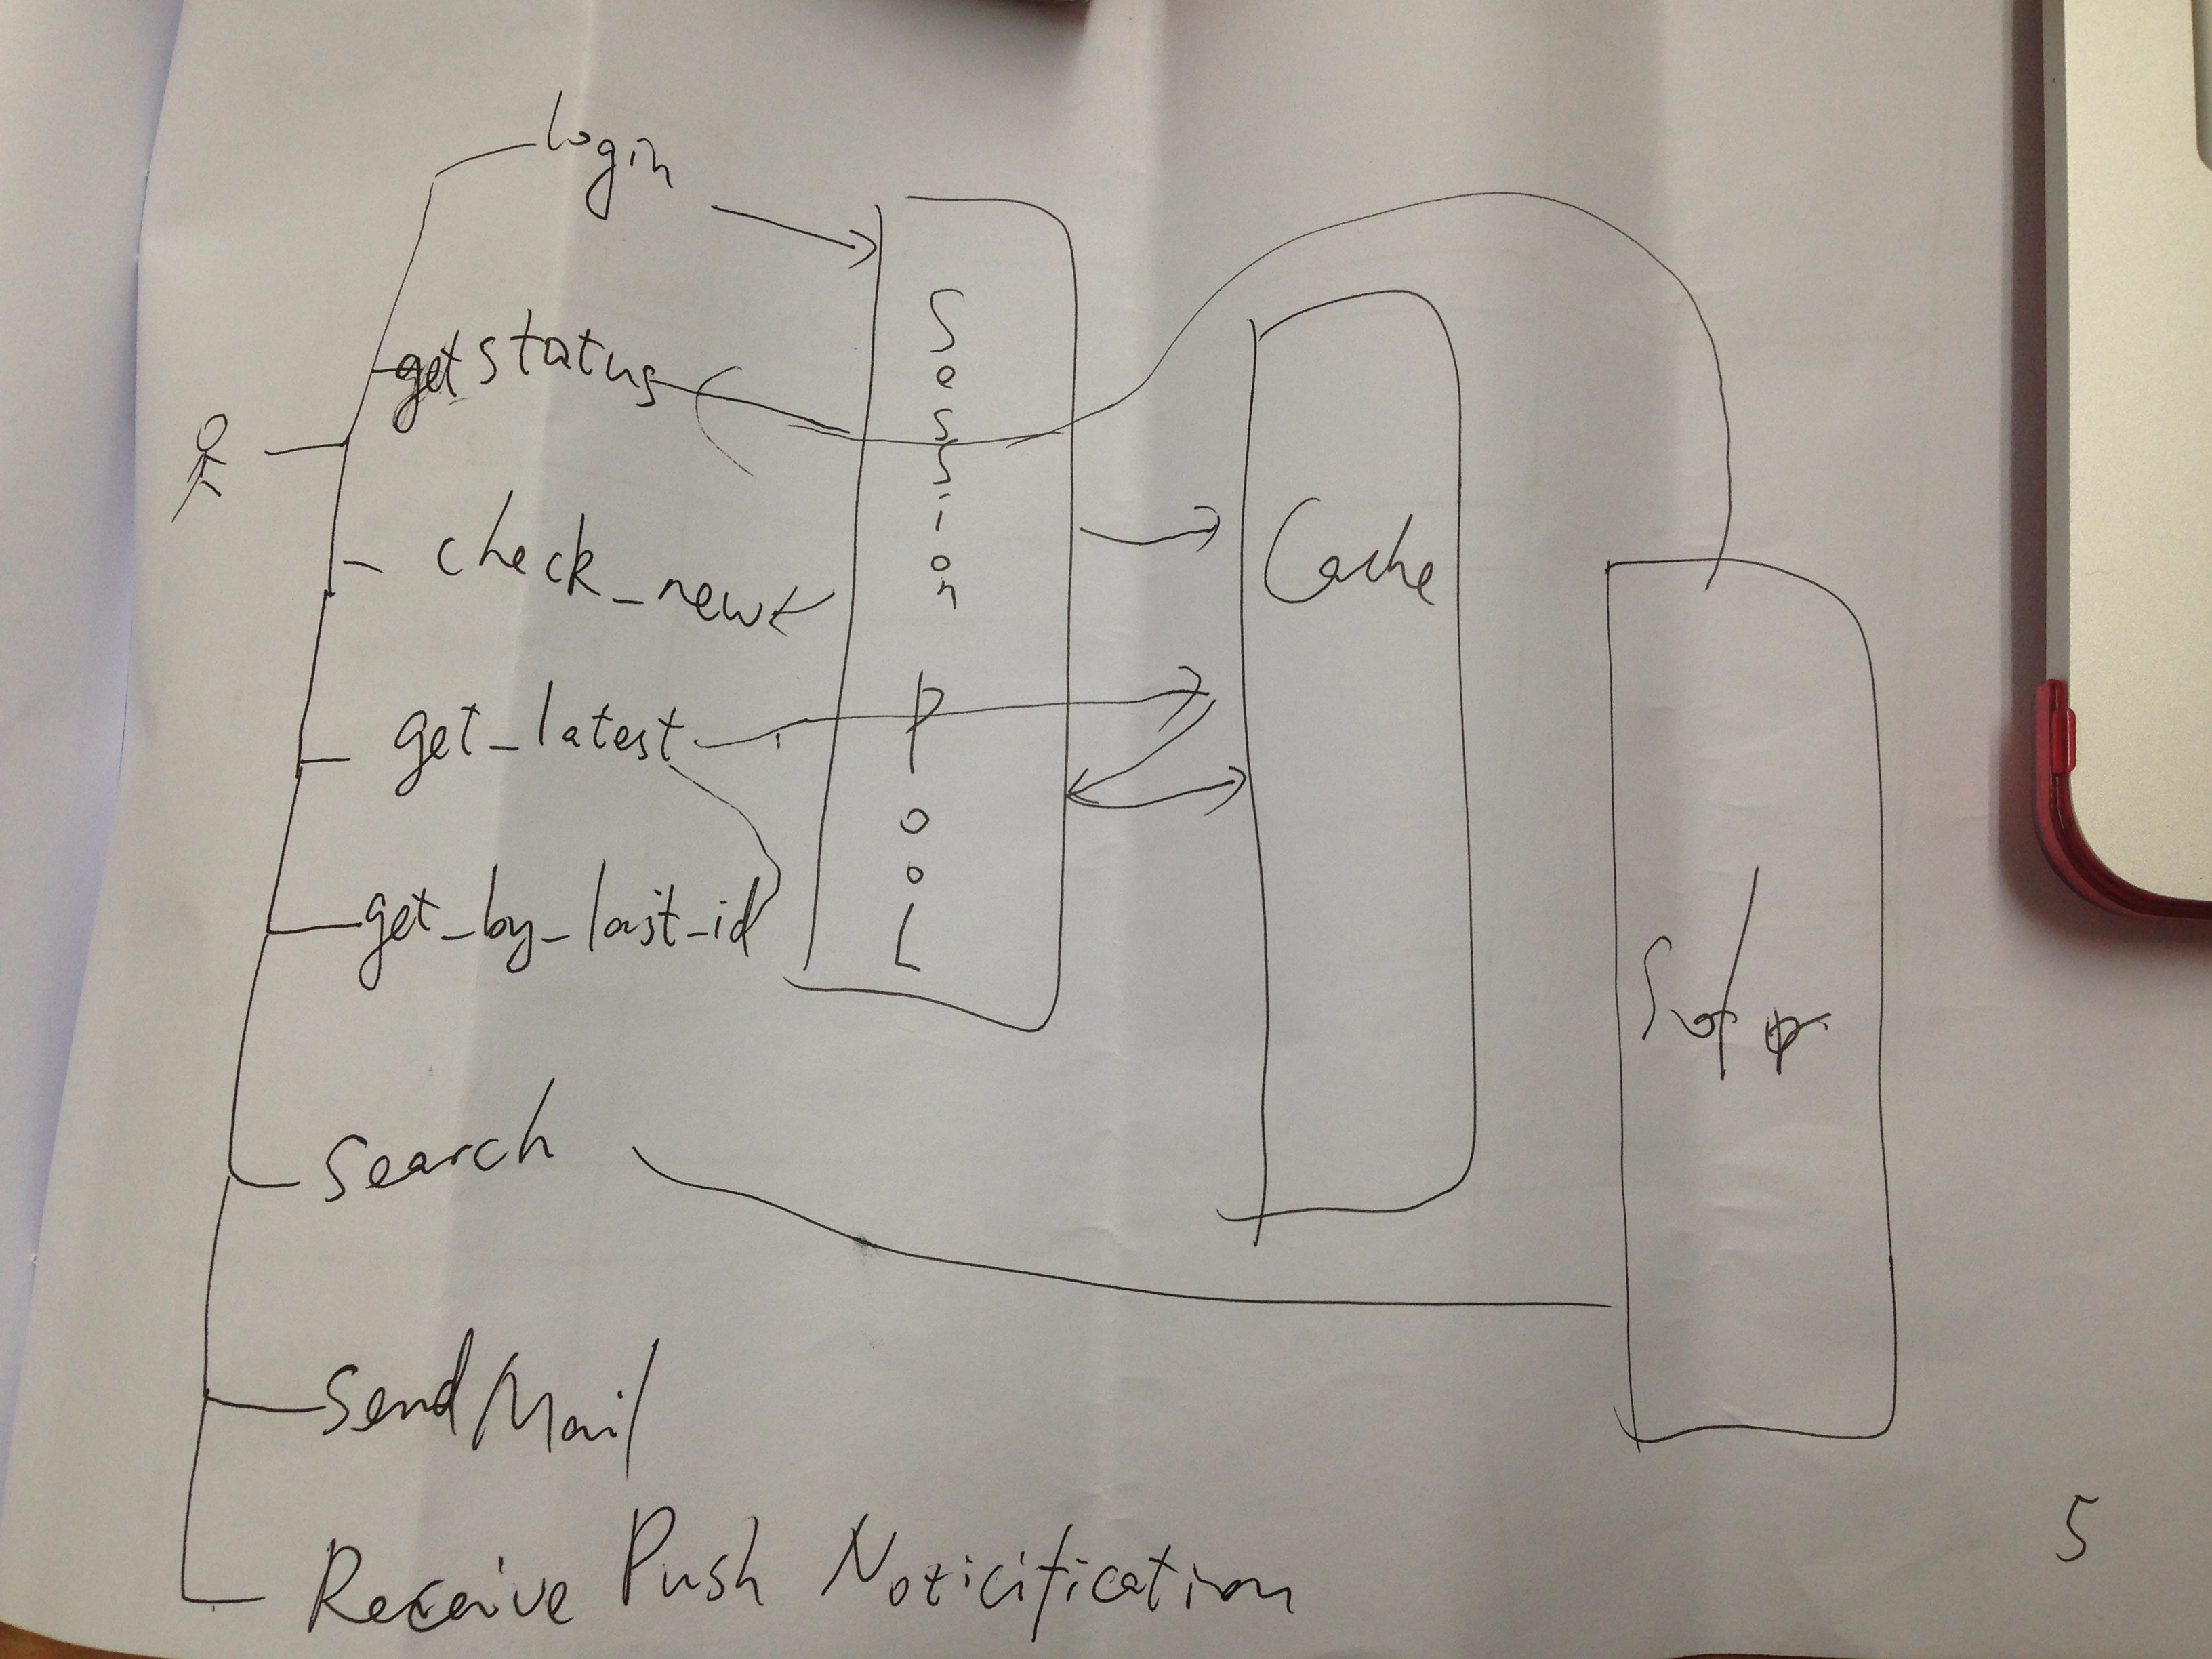 login
getstatus
check_new
get_latest
get_by_last_id
search
SendMail
Receive Push Noticification
Session PooL
Cache
5